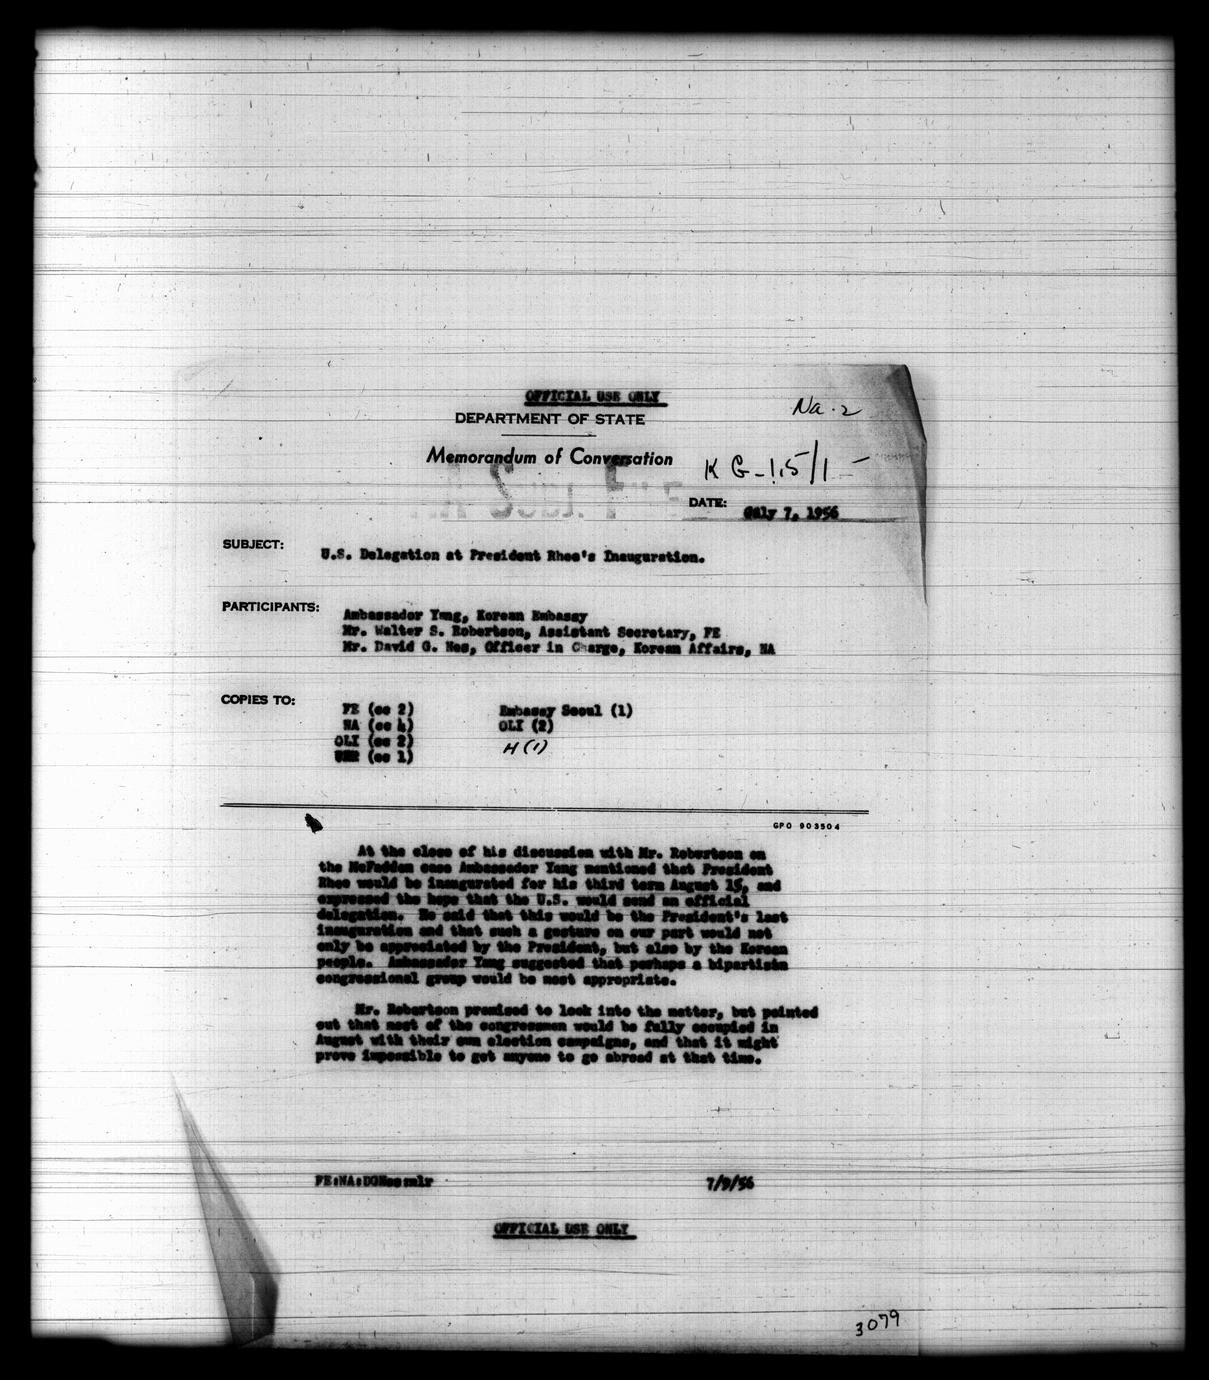 OFFICIAL USE ONLY
DEPARTMENT OF STATE
Na-2
Memorandum of Conversation
K G-1.5/1-
DATE: July 7, 1956
SUBJECT: U.S. Delegation at President Rhee's Inauguration.
PARTICIPANTS: Ambassador Yang, Korean Embassy
Mr. Walter S. Robertson, Assistant Secretary, FE
Mr. David G. Nes, Officer in Charge, Korean Affairs, NA
COPIES TO:
FE (cc 2) Embassy Seoul (1)
NA (cc 4) OLI (2)
OLI (cc 2) H (1)
(cc 1)
GPO 903504
At the close of his discussion with Mr. Robertson on
the McFadden case Ambassador Yang mentioned that President
Rhee would be inaugurated for his third term August 15, and
expressed the hope that the U.S. would send an official
delegation. He said that this would be the President's last
inauguration and that such a gesture on our part would not
only be appreciated by the President, but also by the Korean
people. Ambassador Yang suggested that perhaps a bipartisan
congressional group would be most appropriate.
Mr. Robertson promised to look into the matter, but pointed
out that most of the congressmen would be fully occupied in
August with their own election campaigns, and that it might
prove impossible to get anyone to go abroad at that time.
FE:NA:DGNes:mlr 7/9/56
OFFICIAL USE ONLY
3079